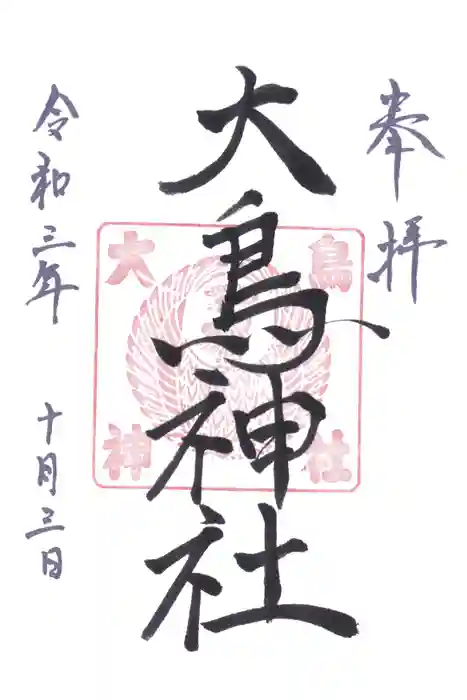 奉拝
大鳥神社
大鳥
神社
令和三年
十月三日